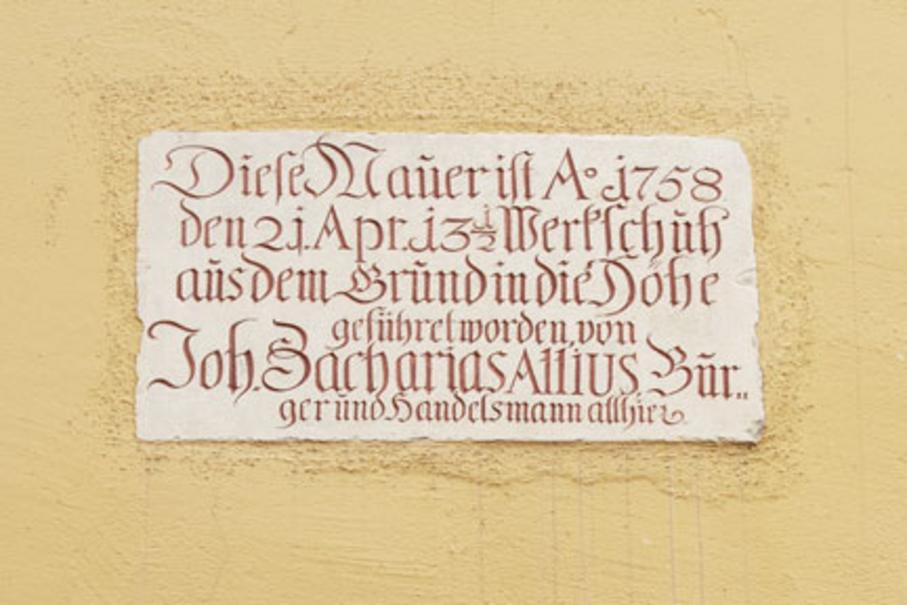 Dieſe Maŭer iſt Ao. 1758
den 21. Apr. 13 1/2 Werkſchŭh
aŭs dem Grŭnd in die Höhe
geführet worden, von
Joh. Zacharias Allius Bŭr⹀
ger ŭnd Handelsmann allhier